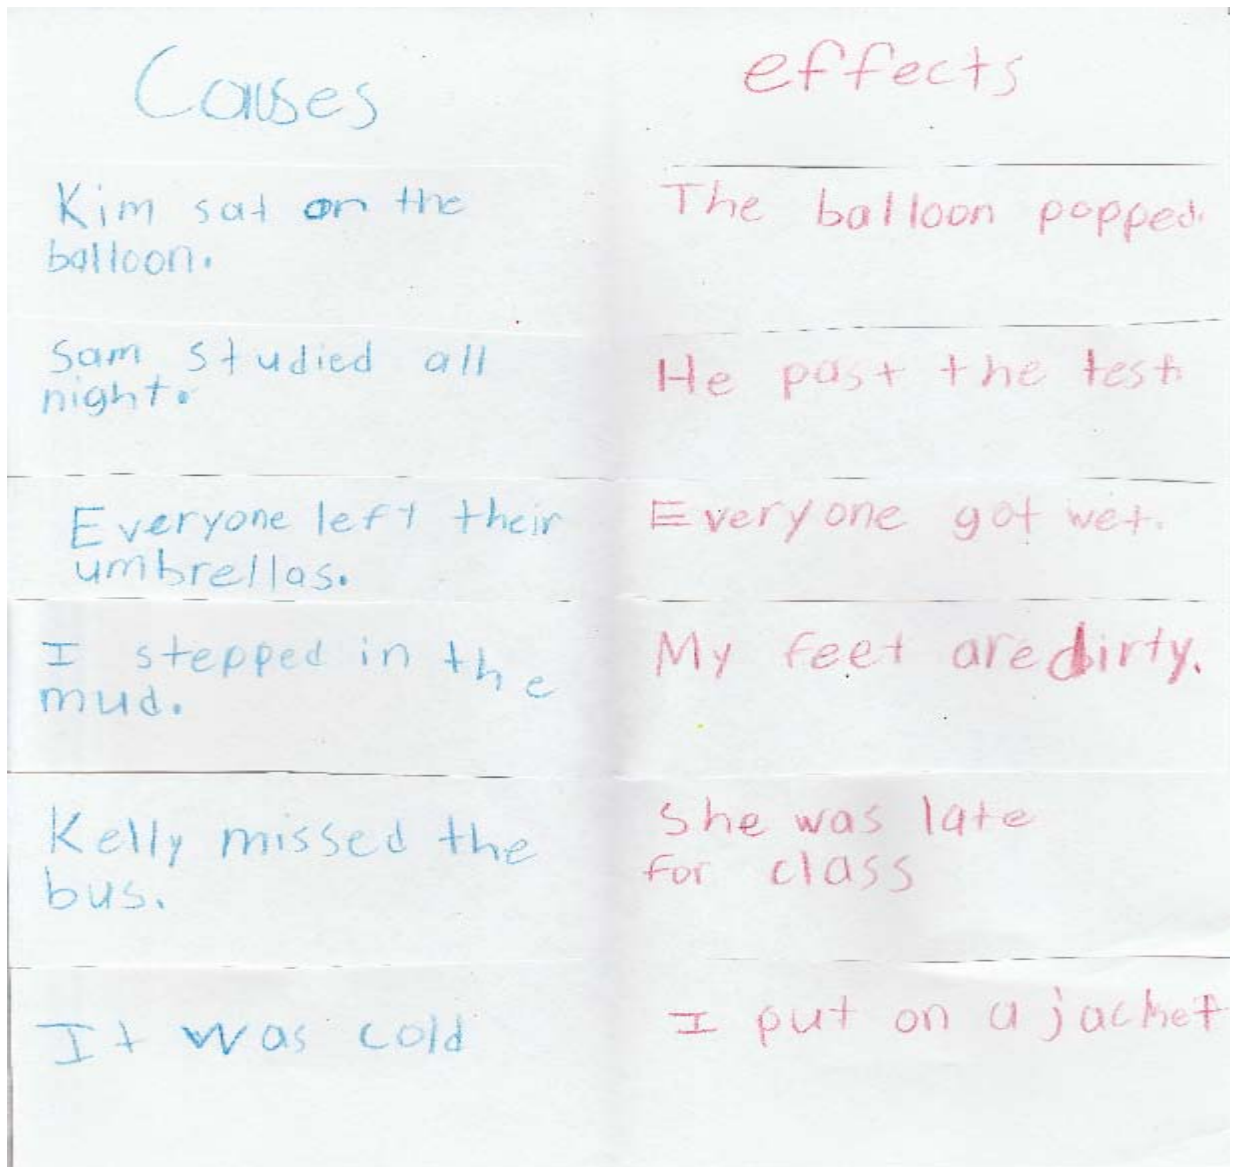 Causes
effects
Kim sat on the
balloon.
The balloon popped.
Sam studied all
night.
He past the test.
Everyone left their
umbrellas.
Everyone got wet.
I stepped in the
mud.
My feet are dirty.
Kelly missed the
bus.
She was late
for class
It was cold
I put on a jacket